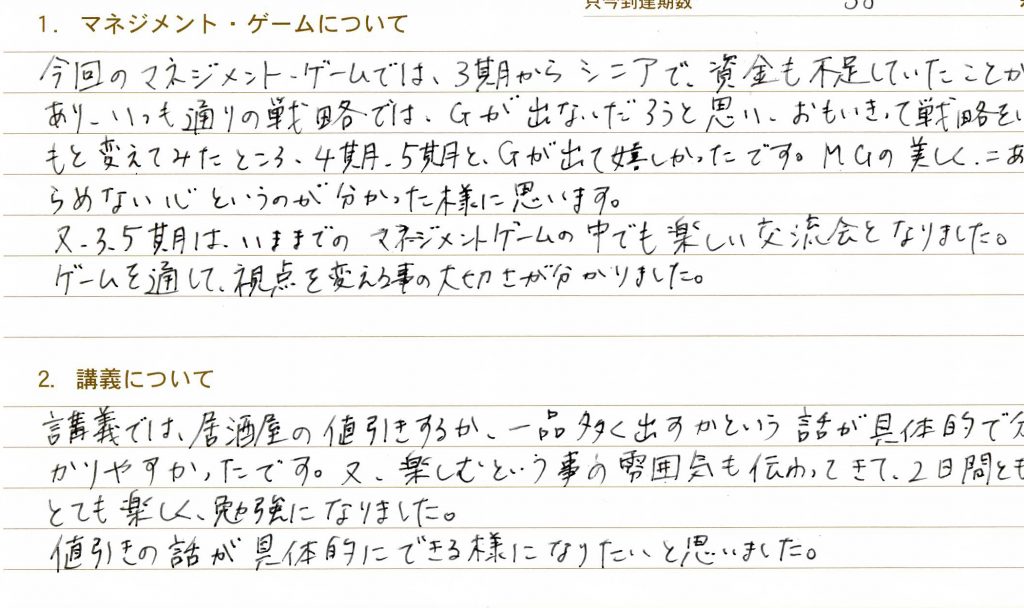 只今到達期数 38
1. マネジメント・ゲームについて
今回のマネジメント・ゲームでは、3期から シニアで、資金も不足していたことが
あり、いつも通りの戦略では、Gが出ないだろうと思い、おもいきって戦略をい
もと変えてみたところ、4期、5期と、Gが出て嬉しかったです。MGの美しく、=あ
らめない心というのが分かった様に思います。
又、3、5期は、いままでのマネジメントゲームの中でも楽しい交流会となりました。
ゲームを通して、視点を変える事の大切さが分かりました。
2. 講義について
講義では、居酒屋の値引きするか、一品多く出すかという話が具体的で分
かりやすかったです。又、楽しむという事の雰囲気も伝わってきて、2日間とも
とても楽しく、勉強になりました。
値引きの話が具体的にできる様になりたいと思いました。